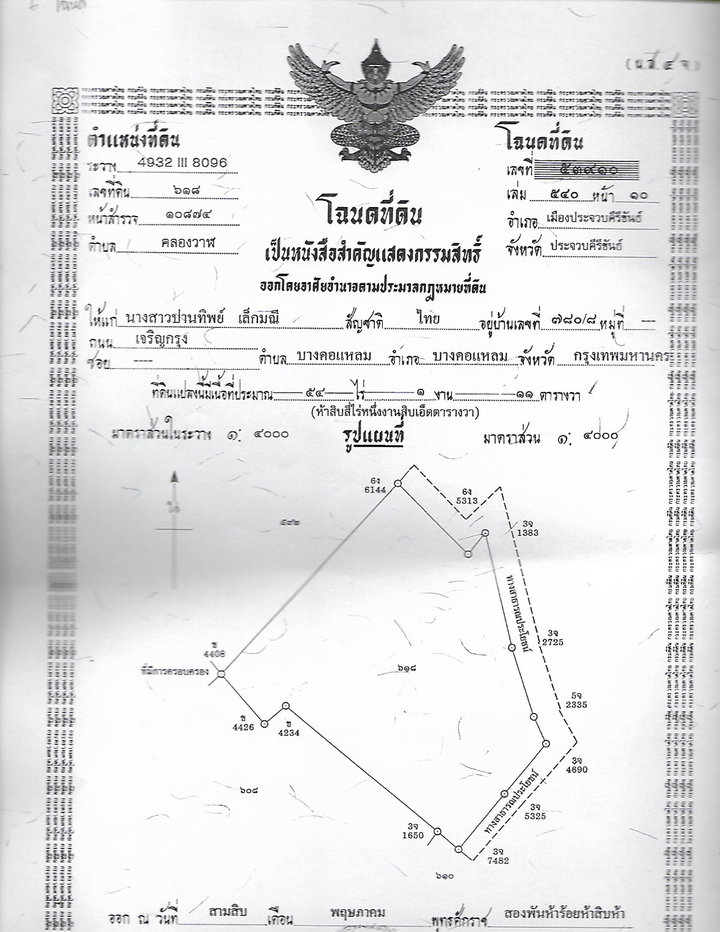 (น.ส.๔ จ.)
ตำแหน่งที่ดิน
ระวาง 4932 III 8096
เลขที่ดิน ๖๑๘
หน้าสำรวจ ๑๐๘๗๔
ตำบล คลองวาฬ
โฉนดที่ดิน
เลขที่ ๕๓๙๑๐
เล่ม ๕๔๐ หน้า ๑๐
อำเภอ เมืองประจวบคีรีขันธ์
จังหวัด ประจวบคีรีขันธ์
โฉนดที่ดิน
เป็นหนังสือสำคัญแสดงกรรมสิทธิ์
ออกโดยอาศัยอำนาจตามประมวลกฎหมายที่ดิน
ให้แก่ นางสาวปานทิพย์ เล็กมณี สัญชาติ ไทย อยู่บ้านเลขที่ ๗๘๐/๘ หมู่ที่ ---
ถนน เจริญกรุง
ซอย ---- ตำบล บางคอแหลม อำเภอ บางคอแหลม จังหวัด กรุงเทพมหานคร
ที่ดินแปลงนี้มีเนื้อที่ประมาณ ๕๔ ไร่ ๑ งาน ๑๑ ตารางวา
(ห้าสิบสี่ไร่หนึ่งงานสิบเอ็ดตารางวา)
มาตราส่วนในระวาง ๑: ๔๐๐๐ รูปแผนที่ มาตราส่วน ๑: ๔๐๐๐
6ง
6144
6ง
5313
3จ
1383
ทางสาธารณประโยชน์
3จ
2725
ช
4408
ที่มีการครอบครอง
๖๑๘
5จ
2335
ช
4426
ช
4234
3จ
4690
๖๐๘
ทางสาธารณประโยชน์
3จ
5325
3จ
1650
3จ
7482
๖๑๐
ออก ณ วันที่ สามสิบ เดือน พฤษภาคม พุทธศักราช สองพันห้าร้อยห้าสิบห้า